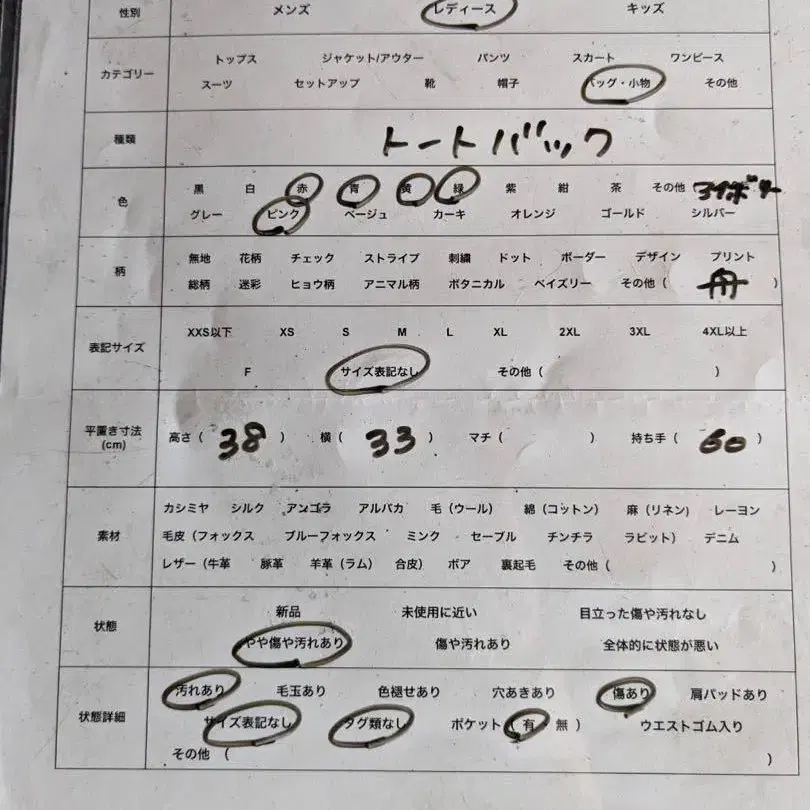 性別 メンズ レディース キッズ
カテゴリー トップス ジャケット/アウター パンツ スカート ワンピース
スーツ セットアップ 靴 帽子 バッグ・小物 その他
種類 トートバック
色 黒 白 赤 青 黄 緑 紫 紺 茶 その他
グレー ピンク ベージュ カーキ オレンジ ゴールド シルバー
柄 無地 花柄 チェック ストライプ 刺繍 ドット ボーダー デザイン プリント
総柄 迷彩 ヒョウ柄 アニマル柄 ボタニカル ペイズリー その他 ( 舟 )
表記サイズ XXS以下 XS S M L XL 2XL 3XL 4XL以上
F サイズ表記なし その他 ( )
平置き寸法 (cm) 高さ ( 38 ) 横 ( 33 ) マチ ( ) 持ち手 ( 60 )
素材 カシミヤ シルク アンゴラ アルパカ 毛（ウール） 綿（コットン） 麻（リネン) レーヨン
毛皮（フォックス ブルーフォックス ミンク セーブル チンチラ ラビット） デニム
レザー（牛革 豚革 羊革（ラム） 合皮） ボア 裏起毛 その他 ( )
状態 新品 未使用に近い 目立った傷や汚れなし
やや傷や汚れあり 傷や汚れあり 全体的に状態が悪い
状態詳細 汚れあり 毛玉あり 色褪せあり 穴あきあり 傷あり 肩パッドあり
サイズ表記なし タグ類なし ポケット ( 有 無 ) ウエストゴム入り
その他 ( )